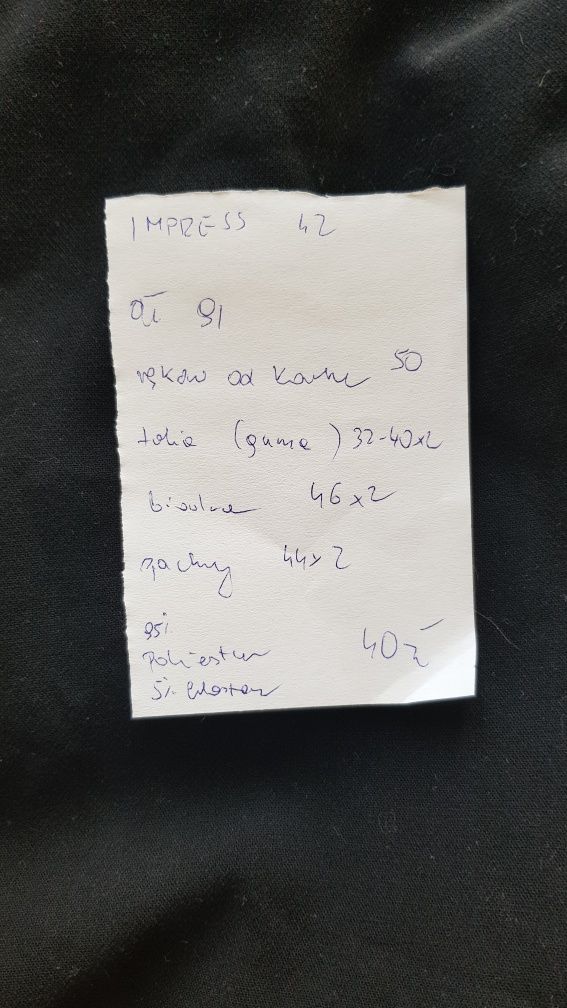 IMPRESS 42
OŁ 91
rękaw od karku 50
talia (guma) 32-40x2
biodra 46x2
pachy 44x2
95%
Poliester
5% elastan
40-